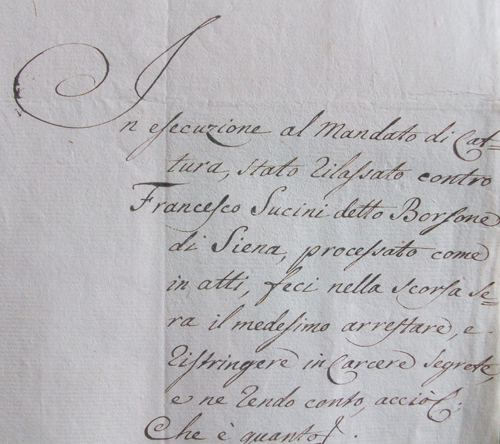 In esecuzione al Mandato di Cat=
tura, stato rilassato contro
Francesco Sucini detto Borsone
di Siena, processato come
in atti, feci nella scorsa se=
ra il medesimo arrestare, e
ristringere in Carcere segrete,
e ne rendo conto, acciò &c:
Che è quanto &c.